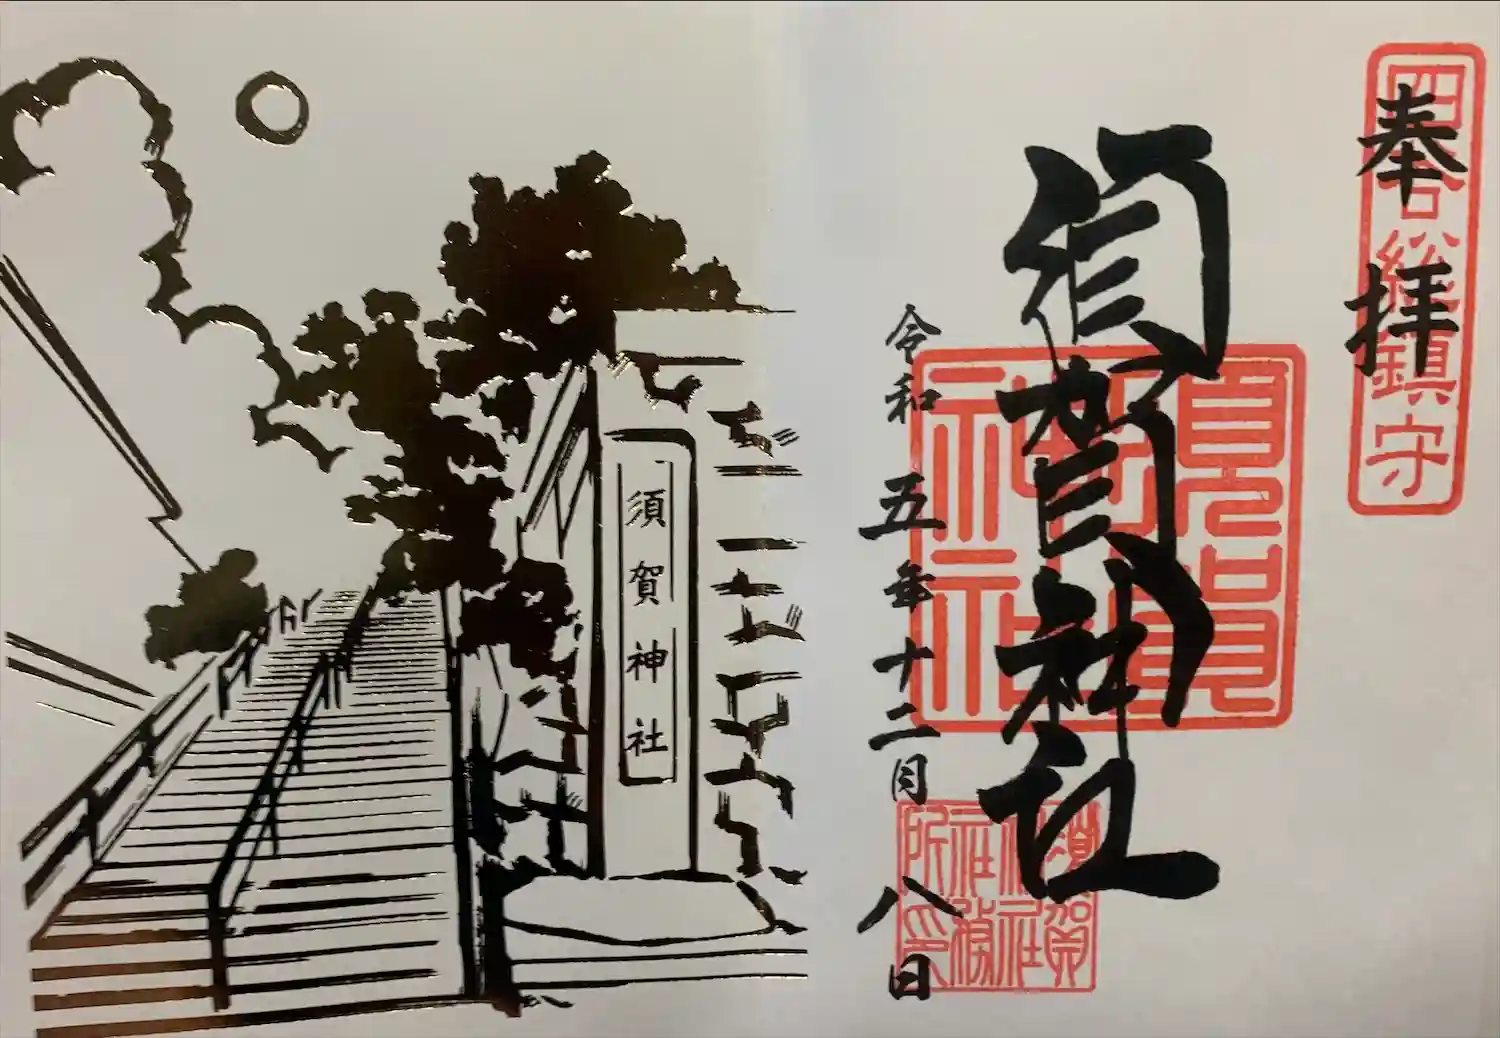 奉拝
四谷総鎮守
須賀神社
須賀神社
令和五年十二月八日
須賀神社社務所印
須賀神社